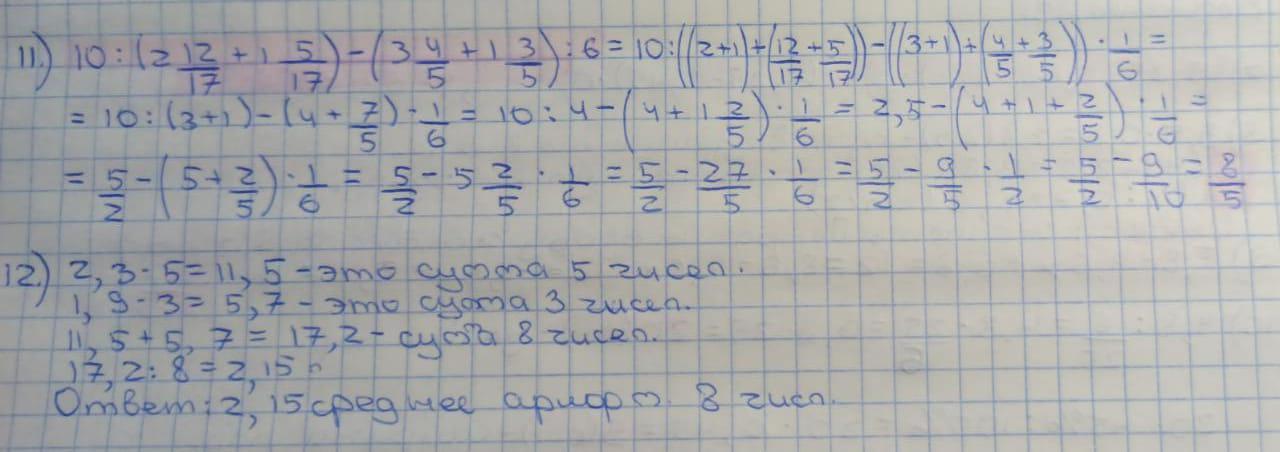 11.) 10 : (2 12/17 + 1 5/17) - (3 4/5 + 1 3/5) : 6 = 10 : ((2+1) + (12/17 + 5/17)) - ((3+1) + (4/5 + 3/5)) · 1/6 =
= 10 : (3+1) - (4 + 7/5) · 1/6 = 10 : 4 - (4 + 1 2/5) · 1/6 = 2,5 - (4 + 1 + 2/5) · 1/6 =
= 5/2 - (5 + 2/5) · 1/6 = 5/2 - 5 2/5 · 1/6 = 5/2 - 27/5 · 1/6 = 5/2 - 9/5 · 1/2 = 5/2 - 9/10 = 8/5
12.) 2,3 · 5 = 11,5 - это сумма 5 чисел.
1,9 · 3 = 5,7 - это сумма 3 чисел.
11,5 + 5,7 = 17,2 - сумма 8 чисел.
17,2 : 8 = 2,15
Ответ: 2,15 среднее арифм. 8 числ.